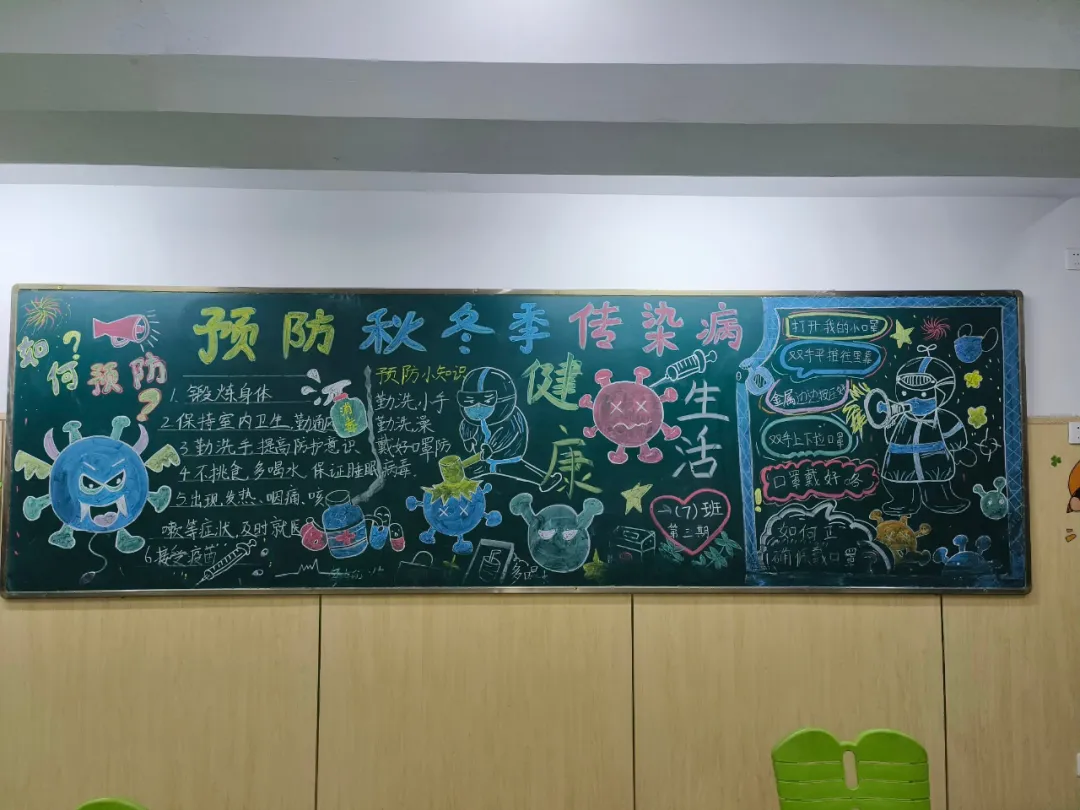 预防秋冬季传染病
如何预防?
?
1.锻炼身体
2.保持室内卫生,勤通
3.勤洗手,提高防护意识
4.不挑食,多喝水,保证睡眠
5.出现发热、咽痛、咳
嗽等症状,及时就医
6.接受疫苗
消毒
预防小知识
勤洗小手
勤洗澡
戴好口罩防
病毒
健康
生活
一(7)班
第三期
打开我的小口罩
双手平捏往里
双手上下拉口罩
口罩戴好咯
如何正
确佩戴口罩